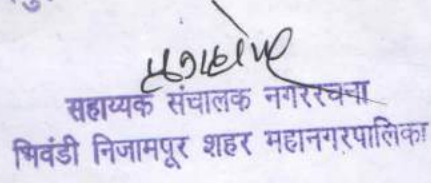 सहाय्यक संचालक नगररचना
भिवंडी निजामपूर शहर महानगरपालिका